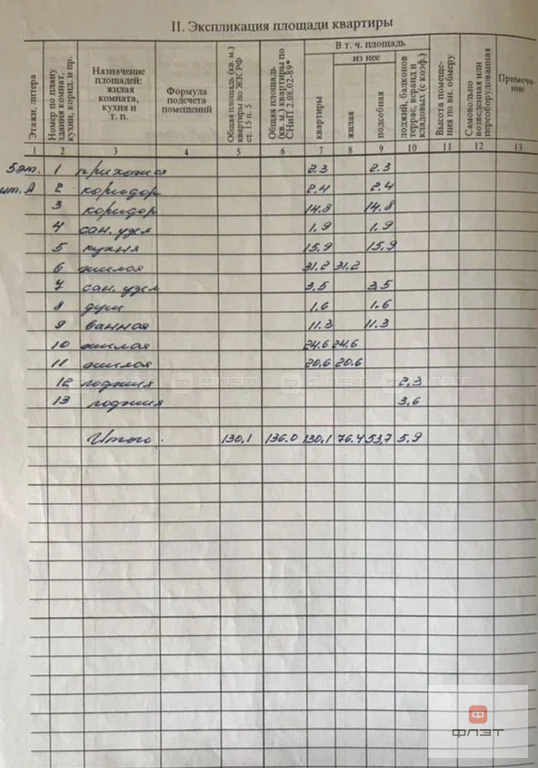 II. Экспликация площади квартиры
Этажи, литера
Номер по плану здания комнат, кухни, корид. и пр.
Назначение площадей: жилая комната, кухня и т. п.
Формула подсчета помещений
Общая площадь (кв. м.) квартиры по ЖК РФ ст. 15 п. 5
Общая площадь (кв. м.) квартиры по СНиП 2.08.02-89*
В т. ч. площадь
из нее
квартиры
жилая
подсобная
лоджий, балконов террас, веранд и кладовых (с коэф.)
Высота помещения по вн. обмеру
Самовольно возведенная или переоборудованная
Примечание
1 2 3 4 5 6 7 8 9 10 11 12 13
5 эт. 1 прихожая 2.3 2.3
лит. А 2 коридор 2.4 2.4
3 коридор 14.8 14.8
4 сан. узел 1.9 1.9
5 кухня 15,9 15,9
6 жилая 31.2 31.2
7 сан. узел 3,5 3,5
8 душ 1.6 1.6
9 ванная 11.3 11.3
10 жилая 24.6 24.6
11 жилая 20.6 20.6
12 лоджия 2.3
13 лоджия 3.6
Итого. 130,1 136.0 130,1 76.4 53,7 5,9
ФЛЭТ
ФЛЭТ